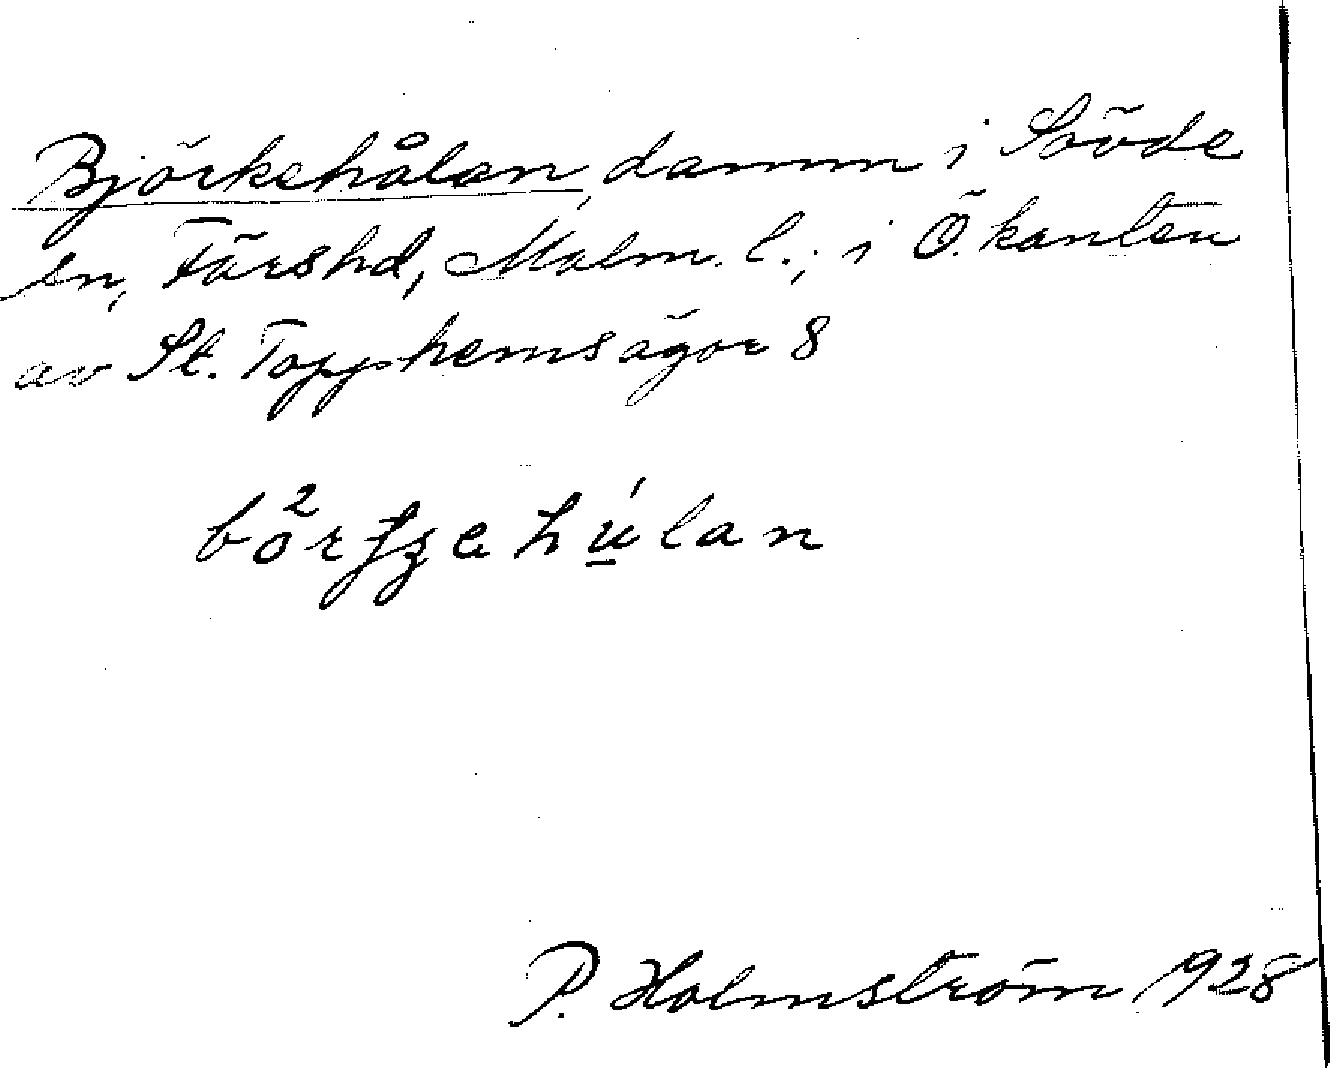 Björkehålan, damm i Sövde
sn, Färshd, Malm. l.; i Ö. kanten
av St. Topphemsägor 8
bö²rʃʒɘ hú̲lan
P. Holmström 1928